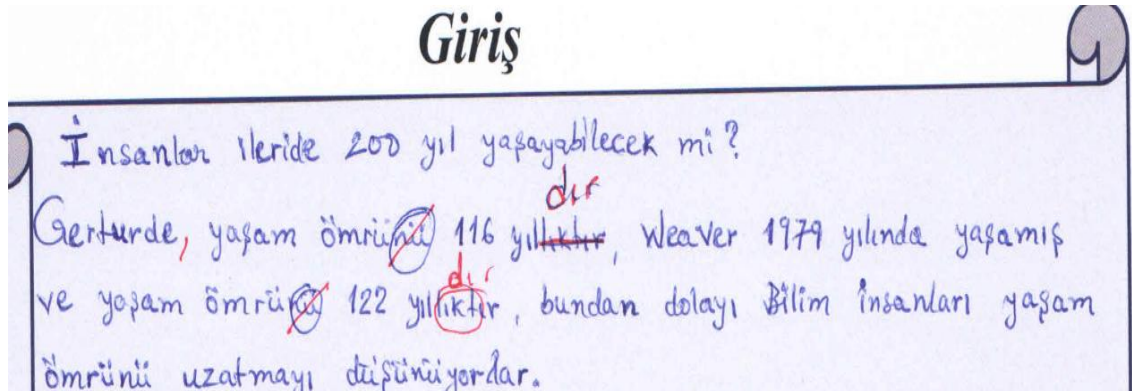 Giriş
İnsanlar ileride 200 yıl yaşayabilecek mi?
dır
Gerturde, yaşam ömrünü 116 yıllıktır, Weaver 1979 yılında yaşamış
dır
ve yaşam ömrünü 122 yıllıktır, bundan dolayı Bilim insanları yaşam
ömrünü uzatmayı düşünüyorlar.